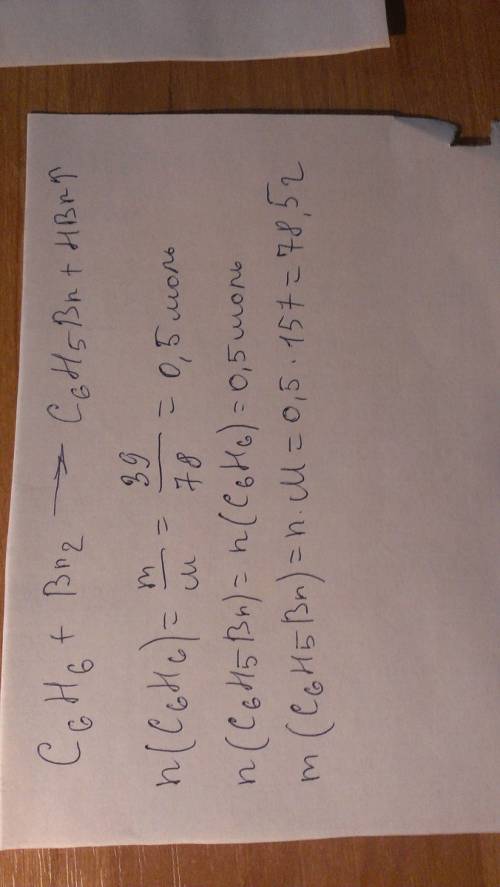 C₆H₆ + Br₂ → C₆H₅Br + HBr↑
n(C₆H₆) = m/M = 39/78 = 0,5 моль
n(C₆H₅Br) = n(C₆H₆) = 0,5 моль
m(C₆H₅Br) = n · M = 0,5 · 157 = 78,5 г